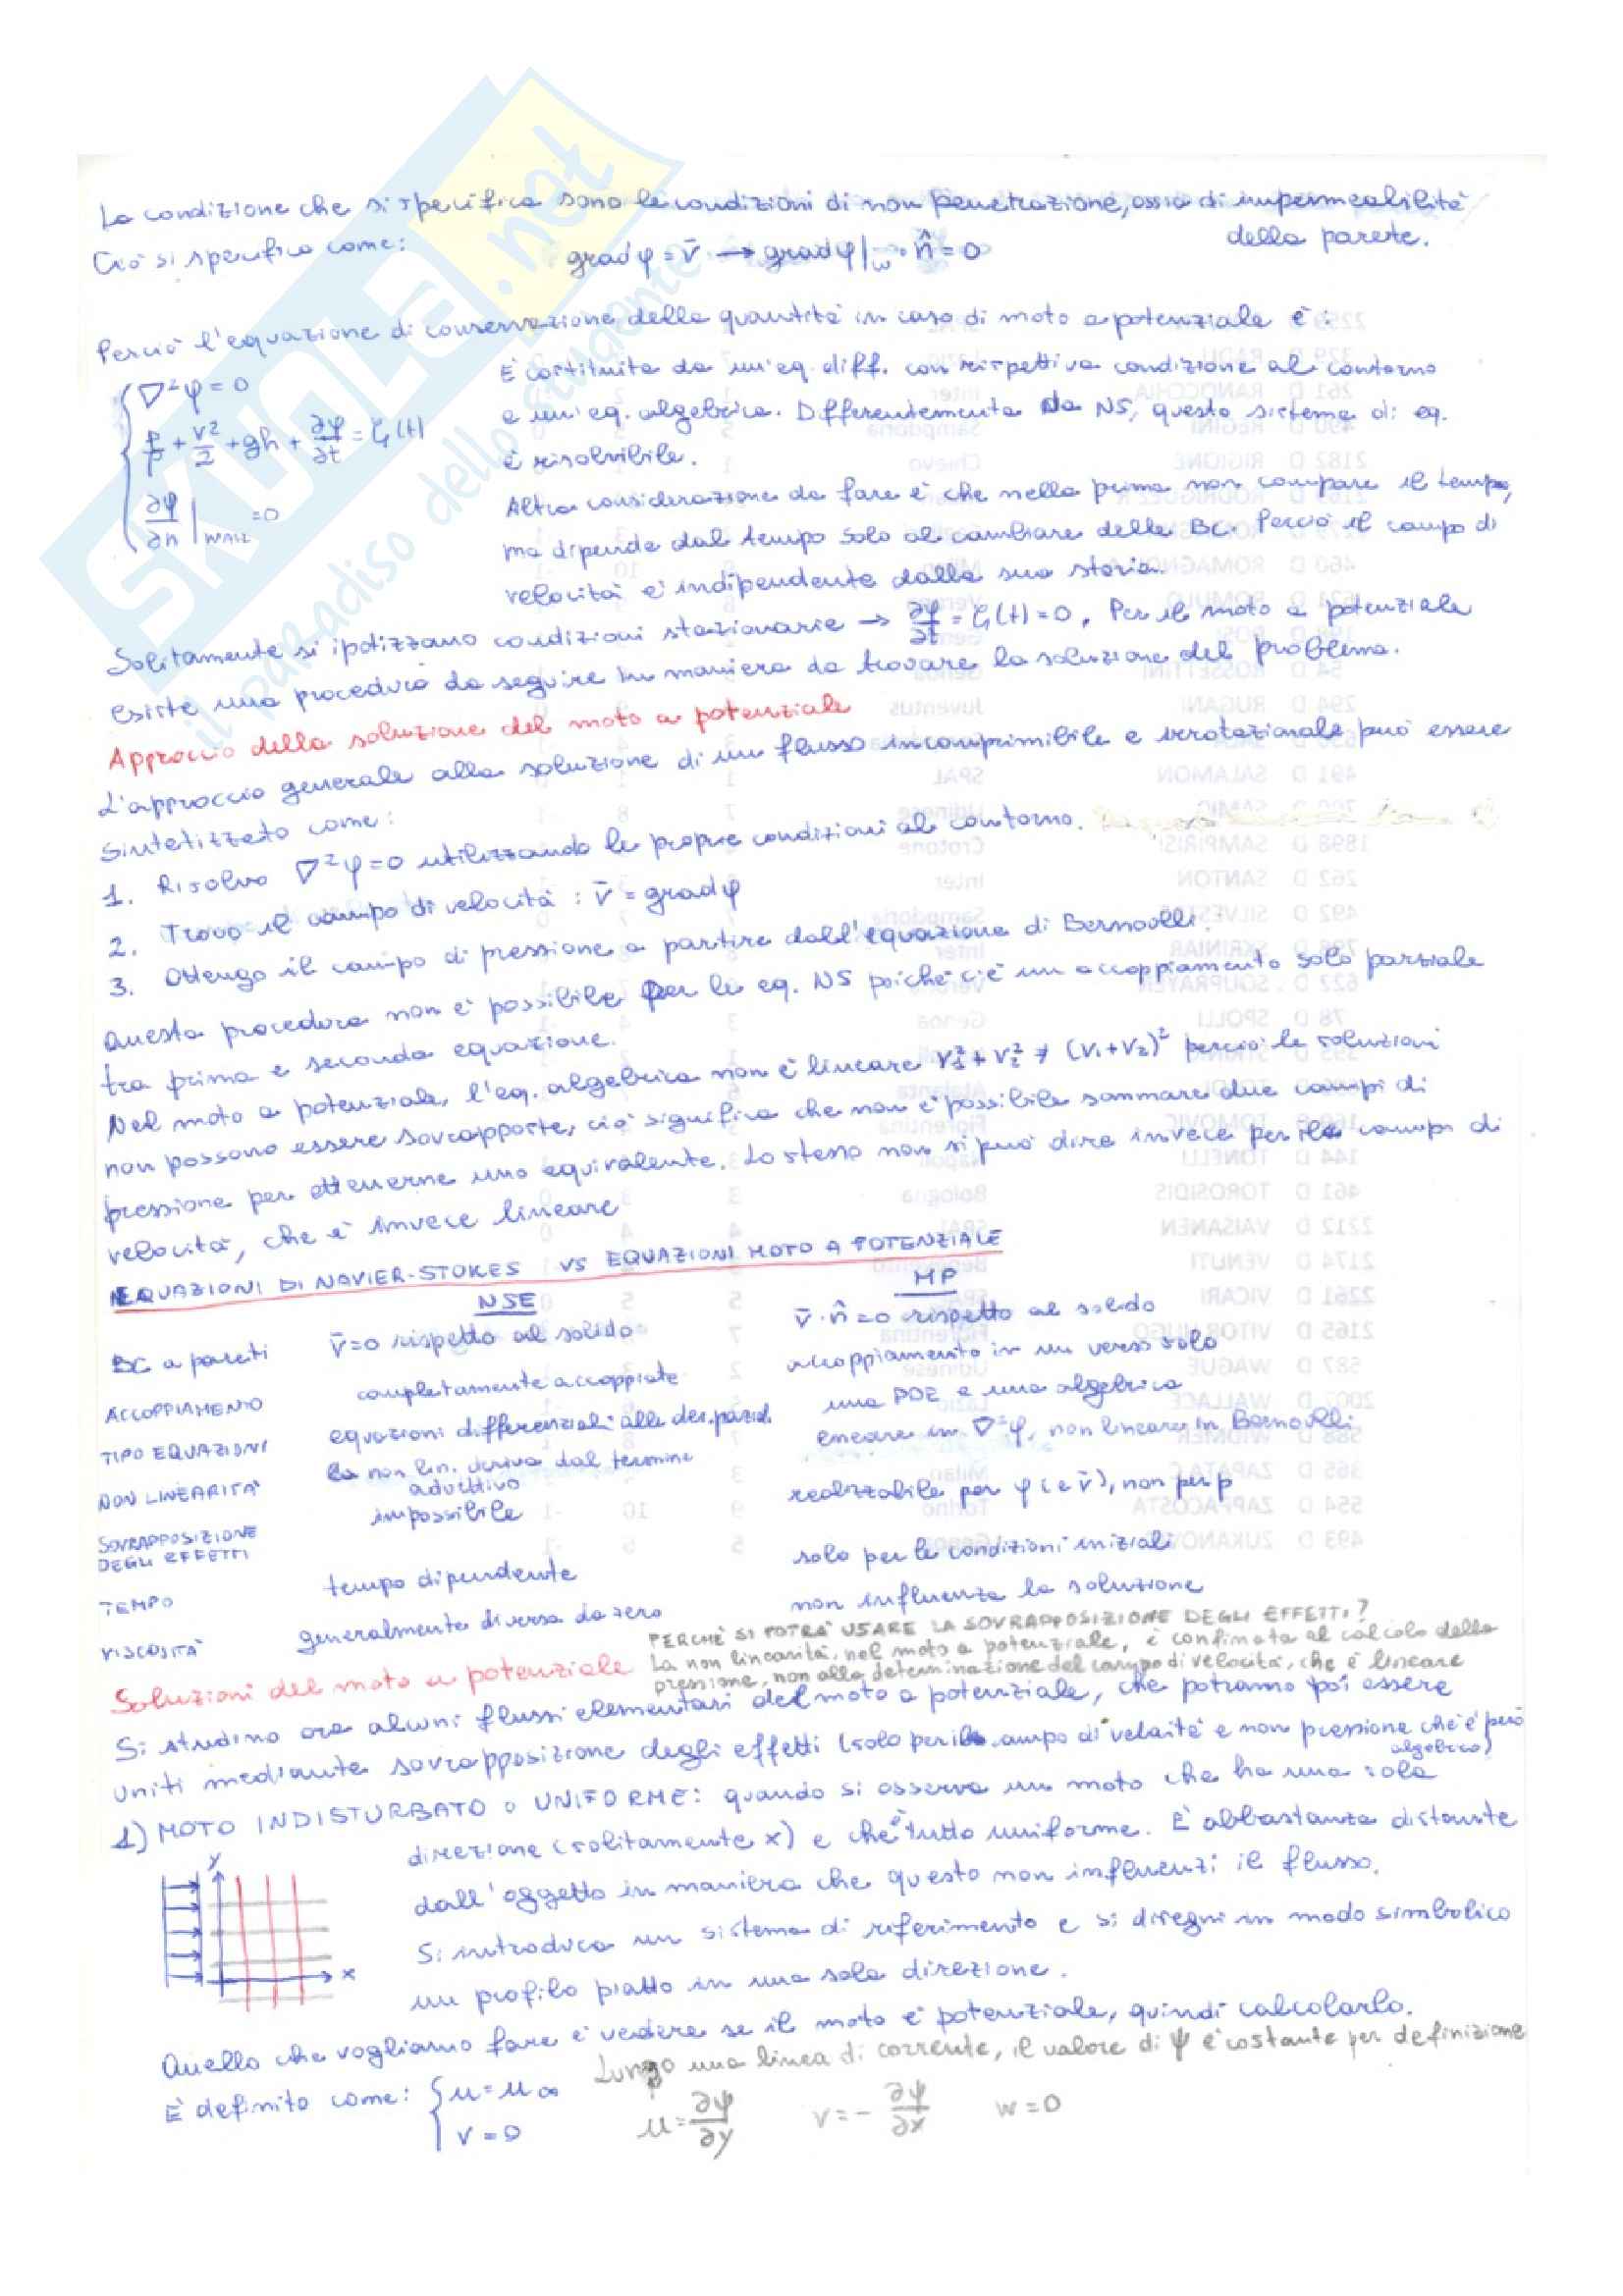 SKUOLA.net
il paradiso dello studente
La condizione che si specifica sono le condizioni di non penetrazione, ossia di impermeabilità
della parete.
Ciò si specifica come: grad φ = v̄ → grad φ|w · n̂ = 0
Perciò l'equazione di conservazione della quantità in caso di moto a potenziale è:
∇²φ = 0
p/ρ + v²/2 + gh + ∂φ/∂t = ζ(t)
∂φ/∂n |WALL = 0
È costituita da un'eq. diff. con rispettiva condizione al contorno
e un'eq. algebrica. Differentemente da NS, questo sistema di eq.
è risolvibile.
Altra considerazione da fare è che nella prima non compare il tempo,
ma dipende dal tempo solo al cambiare delle BC. Perciò il campo di
velocità è indipendente dalla sua storia.
Solitamente si ipotizzano condizioni stazionarie → ∂φ/∂t = ζ(t) = 0. Per il moto a potenziale
esiste una procedura da seguire in maniera da trovare la soluzione del problema.
Approccio della soluzione del moto a potenziale
L'approccio generale alla soluzione di un flusso incomprimibile e irrotazionale può essere
sintetizzato come:
1. Risolvo ∇²φ = 0 utilizzando le proprie condizioni al contorno.
2. Trovo il campo di velocità : v̄ = grad φ
3. Ottengo il campo di pressione a partire dall'equazione di Bernoulli.
Questa procedura non è possibile per le eq. NS poiché c'è un accoppiamento solo parziale
tra prima e seconda equazione.
Nel moto a potenziale, l'eq. algebrica non è lineare v₁² + v₂² ≠ (v₁+v₂)² perciò le soluzioni
non possono essere sovrapposte, ciò significa che non è possibile sommare due campi di
pressione per ottenerne uno equivalente. Lo stesso non si può dire invece per il campi di
velocità, che è invece lineare
EQUAZIONI DI NAVIER-STOKES VS EQUAZIONI MOTO A POTENZIALE
NSE MP
BC a pareti v̄=0 rispetto al solido v̄·n̂=0 rispetto al solido
ACCOPPIAMENTO completamente accoppiate accoppiamento in un verso solo
TIPO EQUAZIONI equazioni differenziali alle der. parzial. una PDE e una algebrica
NON LINEARITÀ la non lin. deriva dal termine advettivo lineare in ∇²φ, non lineare in Bernoulli
SOVRAPPOSIZIONE DEGLI EFFETTI impossibile realizzabile per φ (e v̄), non per p
TEMPO tempo dipendente solo per le condizioni iniziali
VISCOSITÀ generalmente diversa da zero non influenza la soluzione
PERCHÈ SI POTRÀ USARE LA SOVRAPPOSIZIONE DEGLI EFFETTI?
La non linearità, nel moto a potenziale, è confinata al calcolo della
pressione, non alla determinazione del campo di velocità, che è lineare
Soluzioni del moto a potenziale
Si studino ora alcuni flussi elementari del moto a potenziale, che potranno poi essere
uniti mediante sovrapposizione degli effetti (solo per il campo di velocità e non pressione che è però
algebrico)
1) MOTO INDISTURBATO o UNIFORME: quando si osserva un moto che ha una sola
direzione (solitamente x) e che è tutto uniforme. È abbastanza distante
dall'oggetto in maniera che questo non influenzi il flusso.
Si introduca un sistema di riferimento e si disegni in modo simbolico
un profilo piatto in una sola direzione.
y
x
Quello che vogliamo fare è vedere se il moto è potenziale, quindi calcolarlo.
Lungo una linea di corrente, il valore di ψ è costante per definizione
È definito come: { u = u∞
v = 0
u = ∂ψ/∂y v = - ∂ψ/∂x w = 0